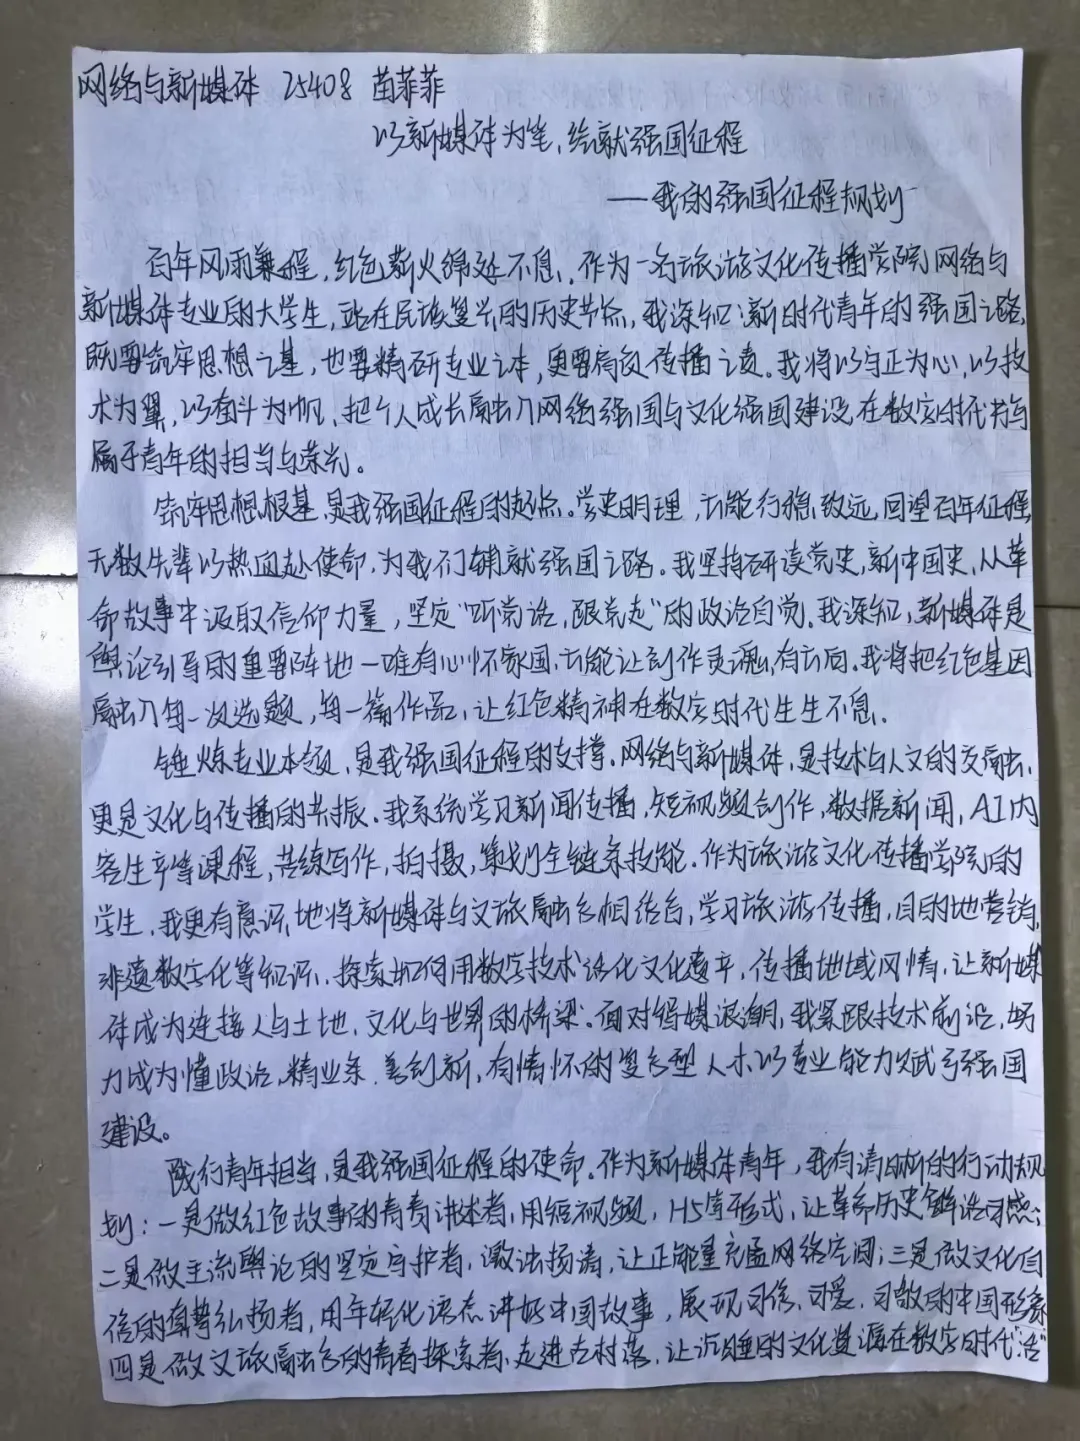 网络与新媒体 25408 苗菲菲
以新媒体为笔,绘就强国征程
——我的强国征程规划
百年风雨兼程,红色薪火绵延不息,作为一名旅游文化传播学院网络与
新媒体专业的大学生,站在民族复兴的历史节点,我深知:新时代青年的强国之路,
既要筑牢思想之基,也要精研专业之本,更要肩负传播之责。我将以守正为心,以技
术为翼,以奋斗为帆,把个人成长融入网络强国与文化强国建设,在数字时代书写
属于青年的担当与荣光。
筑牢思想根基,是我强国征程的起点。学史明理,方能行稳致远,回望百年征程,
无数先辈以热血赴使命,为我们铺就强国之路。我坚持研读党史,新中国史,从革
命故事中汲取信仰力量,坚定“听党话,跟党走”的政治自觉。我深知,新媒体是
舆论引导的重要阵地一唯有心怀家国,方能让创作灵魂,有方向。我将把红色基因
融入每一次选题,每一篇作品,让红色精神在数字时代生生不息。
锤炼专业本领,是我强国征程的支撑。网络与新媒体,是技术与人文的交融,
更是文化与传播的共振。我系统学习新闻传播,短视频创作,数据新闻,AI内
容生产等课程,苦练写作,拍摄,策划全链条技能。作为旅游文化传播学院的
学生,我更有意识地将新媒体与文旅融合相结合,学习旅游传播,目的地营销,
非遗数字化等知识,探索如何用数字技术活化文化遗产,传播地域风情,让新媒
体成为连接人与土地,文化与世界的桥梁。面对智媒浪潮,我紧跟技术前沿,努
力成为懂政治,精业务,善创新,有情怀的复合型人才以专业能力赋予强国
建设。
践行青年担当,是我强国征程的使命。作为新媒体青年,我有清晰的行动规
划:一是做红色故事的青春讲述者,用短视频,H5等形式,让革命历史鲜活可感;
二是做主流舆论的坚定守护者,激浊扬清,让正能量充盈网络空间;三是做文化自
信的真挚弘扬者,用年轻化语态讲好中国故事,展现可信,可爱,可敬的中国形象
四是做文旅融合的青春探索者,走进古村落,让沉睡的文化资源在数字时代“活”